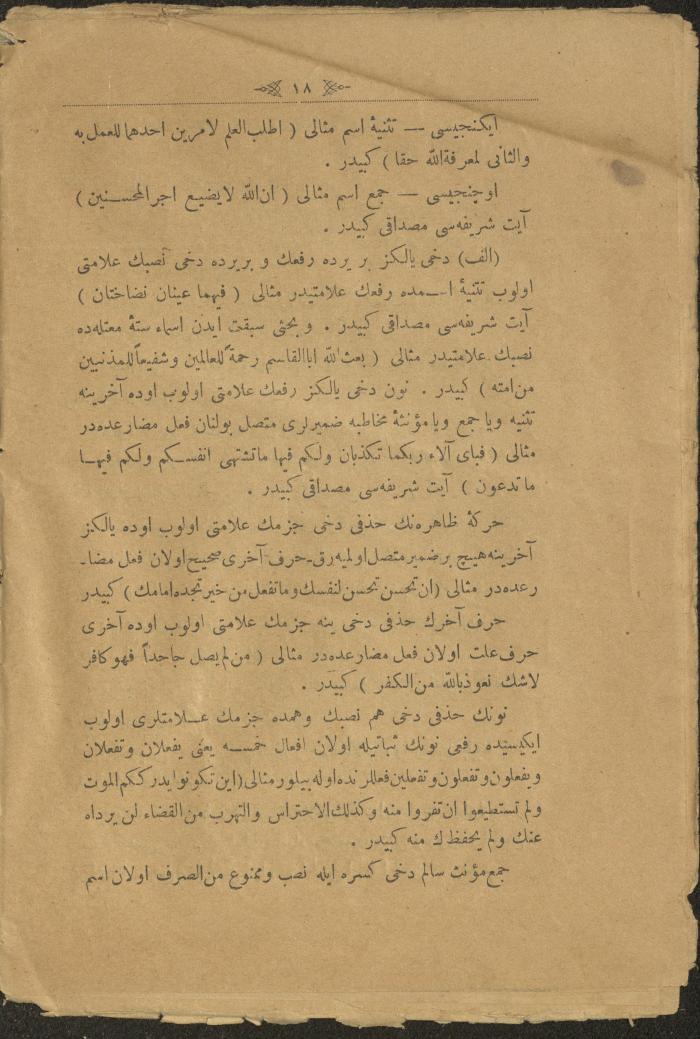 ١٨
ايكنجيسى — تثنيهٔ اسم مثالى ( اطلب العلم لامرين احدهما للعمل به
والثانى لمعرفة الله حقا ) كبيدر .
اوچنجيسى — جمع اسم مثالى ( ان الله لايضيع اجر المحسنين )
آيت شريفه‌سى مصداقى كبيدر .
(الف) دخى يالكز بر يرده رفعك و بريرده دخى نصبك علامتى
اولوب تثنيهٔ اسمده رفعك علامتيدر مثالى ( فيهما عينان نضاختان )
آيت شريفه‌سى مصداقى كبيدر . و بحثى سبقت ايدن اسماء ستهٔ معتله‌ده
نصبك علامتيدر مثالى ( بعث الله اباالقاسم رحمةً للعالمين وشفيعاً للمذنبين
من امته ) كبيدر . نون دخى يالكز رفعك علامتى اولوب اوده آخرينه
تثنيه ويا جمع ويا مؤنثهٔ مخاطبه ضميرلرى متصل بولنان فعل مضارعده‌در
مثالى ( فباى آلاء ربكما تكذبان ولكم فيها ماتشتهى انفسكم ولكم فيها
ماتدعون ) آيت شريفه‌سى مصداقى كبيدر .
حركهٔ ظاهره‌نك حذفى دخى جزمك علامتى اولوب اوده يالكز
آخرينه هيچ بر ضمير متصل اولميه‌رق حرف آخرى صحيح اولان فعل مضا-
رعده‌در مثالى (ان تحسن تحسن لنفسك وماتفعل من خير تجده امامك ) كبيدر
حرف آخرك حذفى دخى ينه جزمك علامتى اولوب اوده آخرى
حرف علت اولان فعل مضارعده‌در مثالى ( من لم يصل جاحداً فهو كافر
لاشك نعوذ بالله من الكفر ) كبيدر .
نونك حذفى دخى هم نصبك وهمده جزمك علامتلرى اولوب
ايكيسنده رفعى نونك ثباتيله اولان افعال خمسه يعنى يفعلان وتفعلان
ويفعلون وتفعلون وتفعلين فعللرنده اوله بيلور مثالى (اين تكونوا يدرككم الموت
ولم تستطيعوا ان تفروا منه وكذلك الاحتراس والتهرب من القضاء لن يرداه
عنك ولم يحفظك منه كبيدر .
جمع مؤنث سالم دخى كسره ايله نصب وممنوع من الصرف اولان اسم